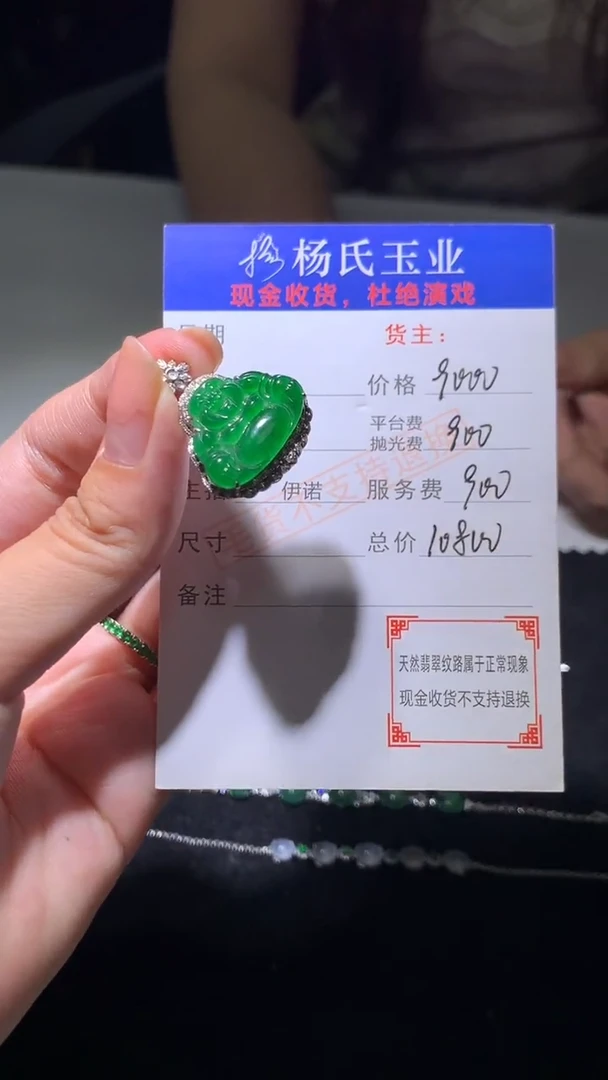 杨氏玉业
现金收货，杜绝演戏
日期 货主：
价格 9000
平台费
抛光费 900
主播 伊诺 服务费 900
尺寸 总价 10800
备注
现金收货不支持退换
天然翡翠纹路属于正常现象
现金收货不支持退换